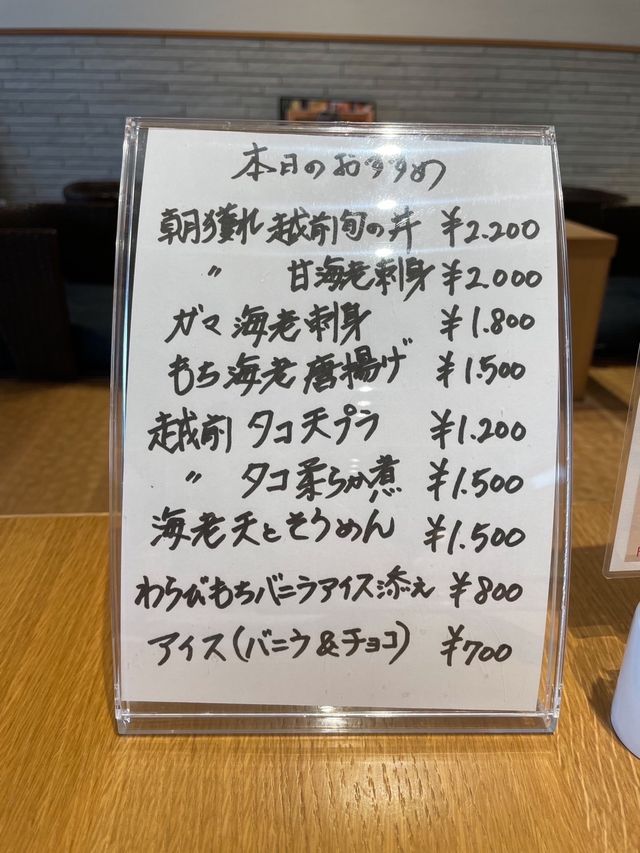 本日のおすすめ
朝獲れ 越前旬の丼 ¥2.200
〃 甘海老刺身 ¥2.000
ガマ海老刺身 ¥1.800
もち海老唐揚げ ¥1.500
越前タコ天プラ ¥1.200
〃 タコ柔らか煮 ¥1.500
海老天とそうめん ¥1.500
わらびもちバニラアイス添え ¥800
アイス(バニラ&チョコ) ¥700